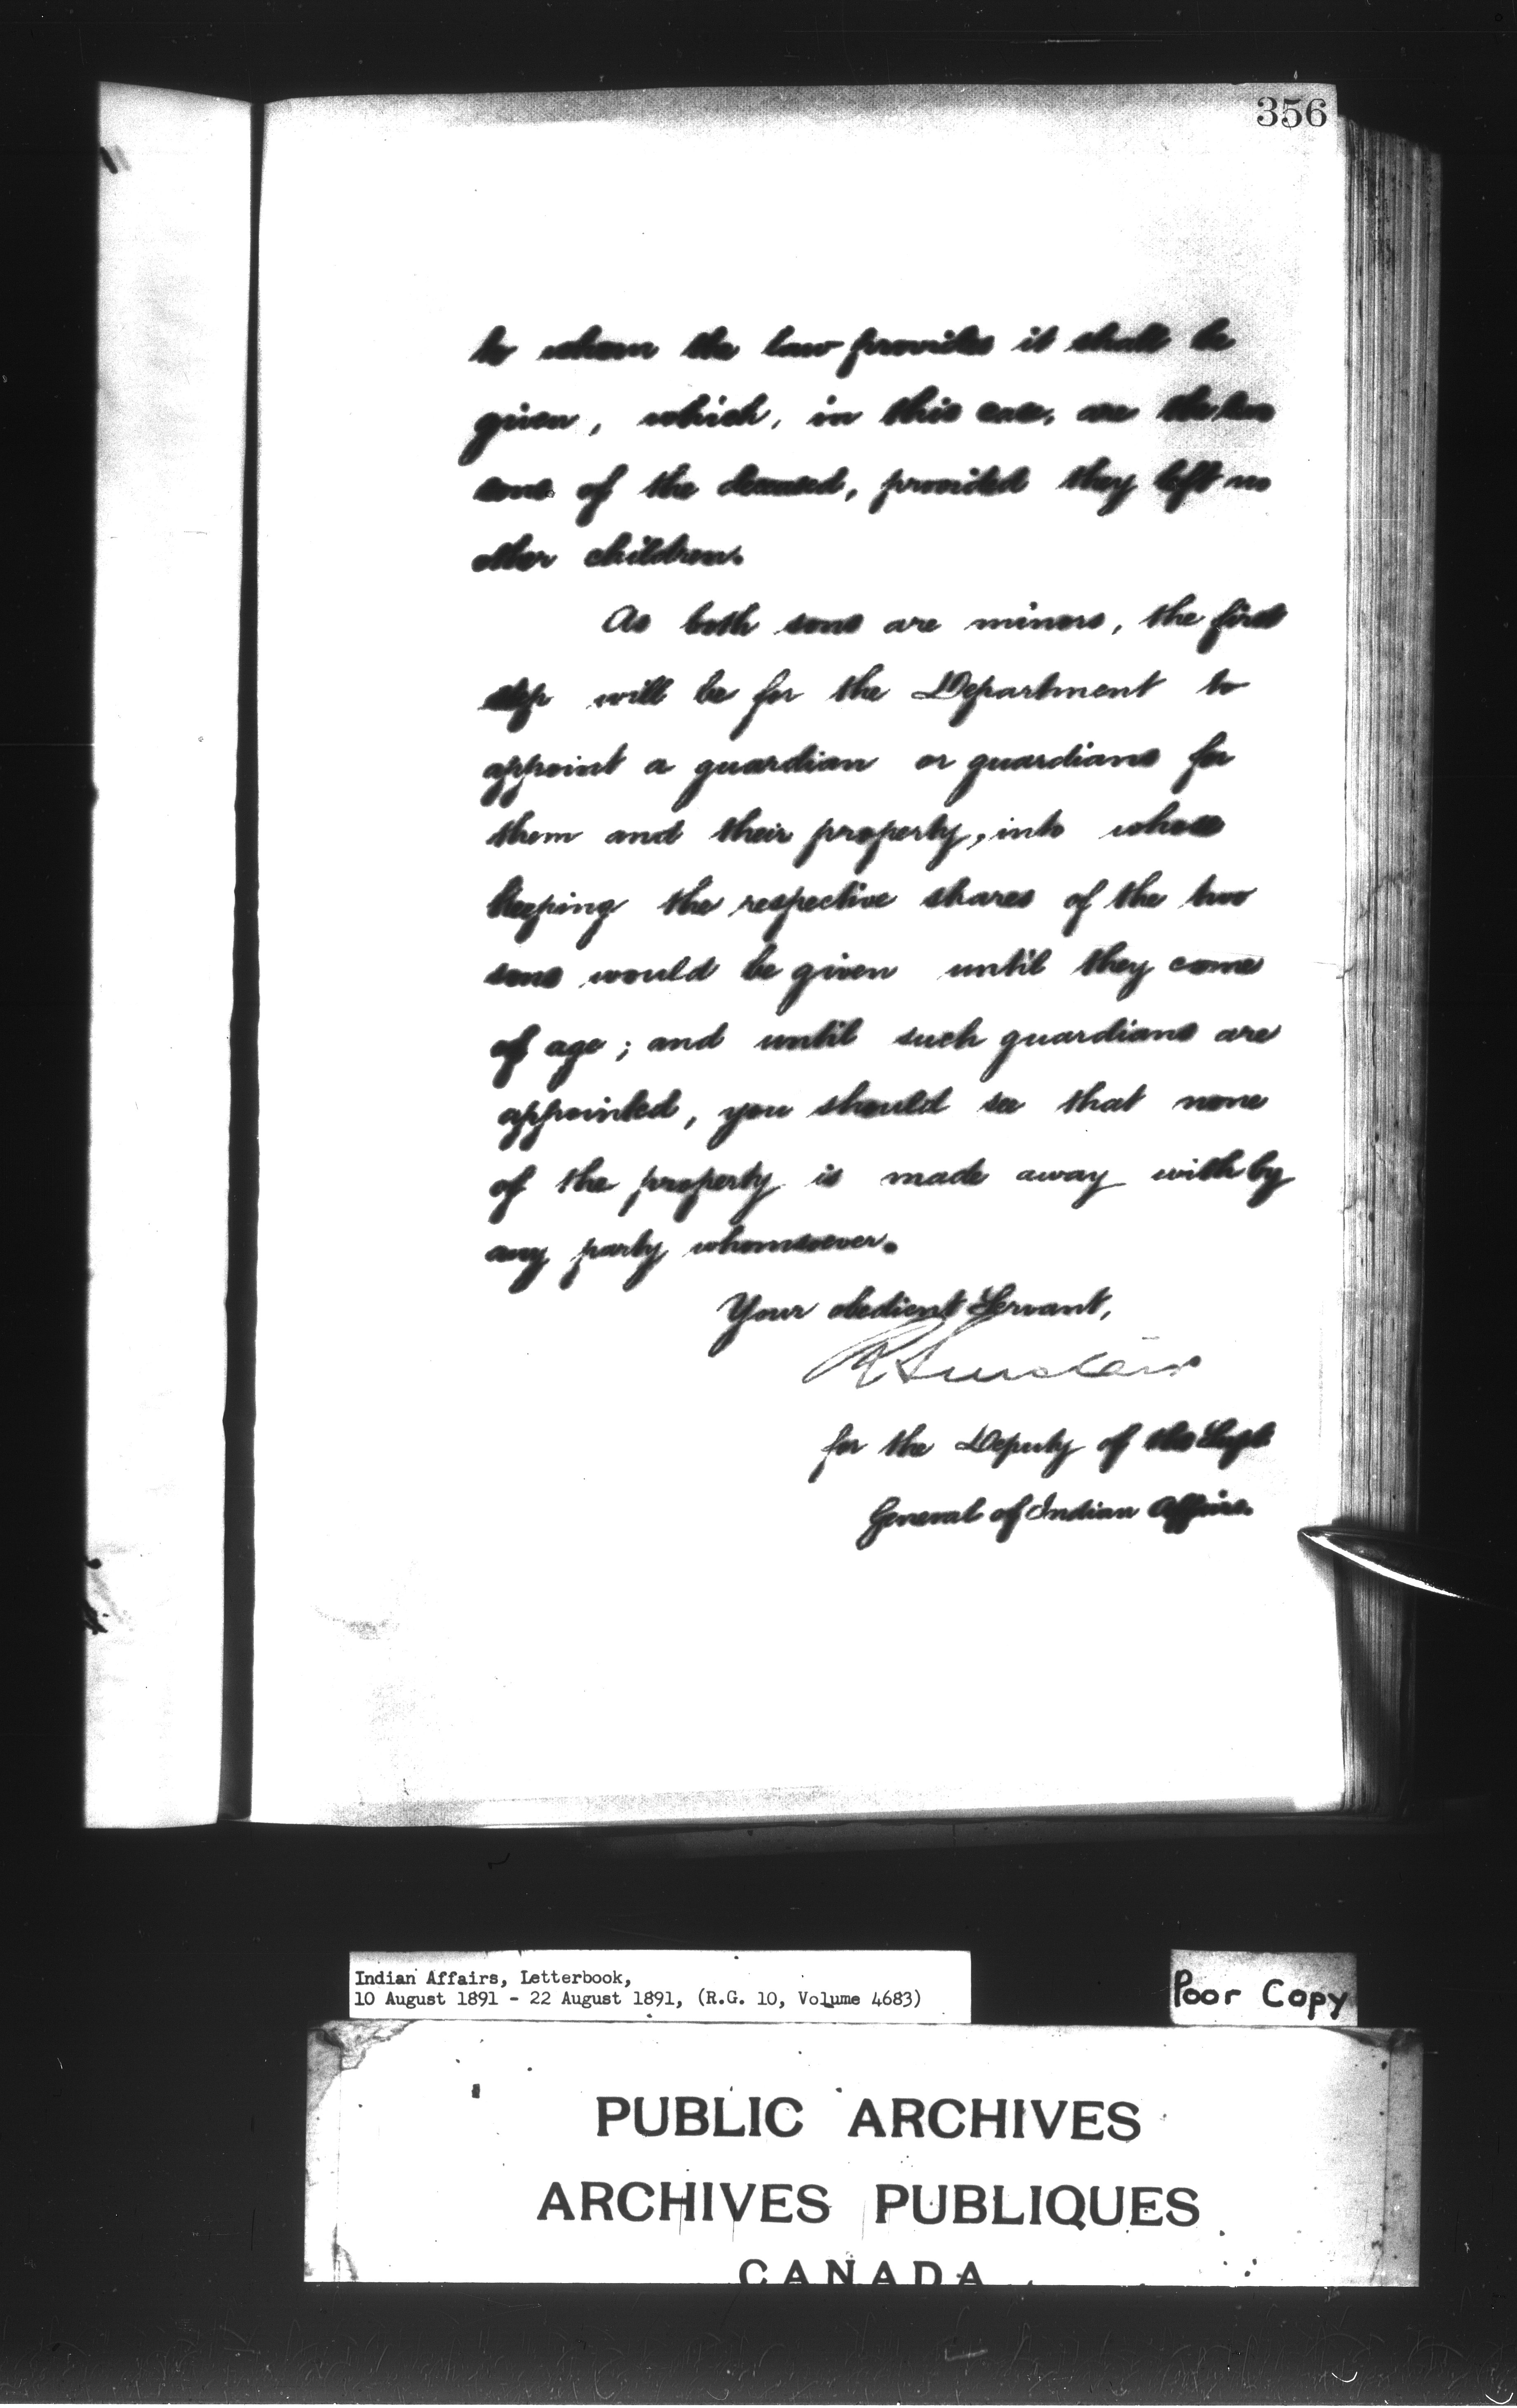 356
to whom the law provides it shall be
given, which, in this case, are the two
sons of the deceased, provided they left no
other children.
As both sons are minors, the first
step will be for the Department to
appoint a guardian or guardians for
them and their property, into whose
keeping the respective shares of the two
sons would be given until they come
of age; and until such guardians are
appointed, you should see that none
of the property is made away with by
any party whomsoever.
Your obedient Servant,
for the Deputy of the Supt
General of Indian Affairs.
Indian Affairs, Letterbook,
10 August 1891 - 22 August 1891, (R.G. 10, Volume 4683)
Poor Copy
PUBLIC ARCHIVES
ARCHIVES PUBLIQUES
CANADA